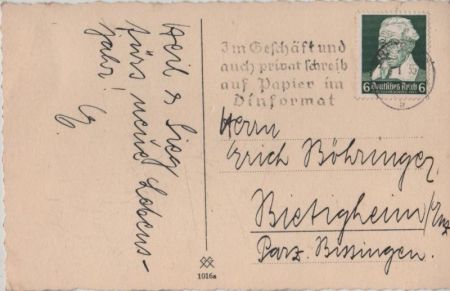 Heil & Sieg
fürs neue Lebens-
jahr!
Im Geschäft und
auch privat schreib
auf Papier in
Dinformat
Deutsches Reich
6 6
Herrn
Erich Böhringer,
Bietigheim/Enz
Parz. Bissingen.
1016a